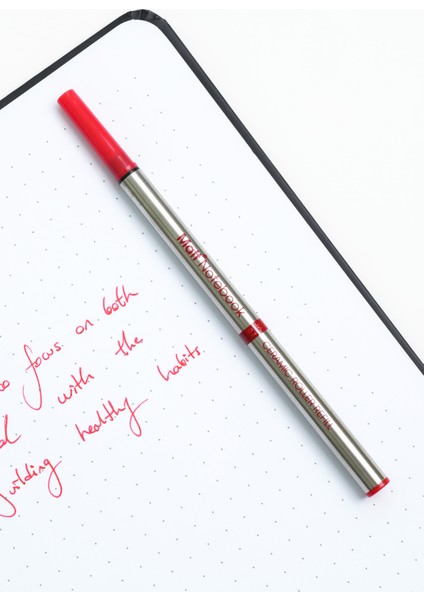 Matt Notebook
CERAMIC ROLLER REFILL
focus on both
with the
building healthy habits.